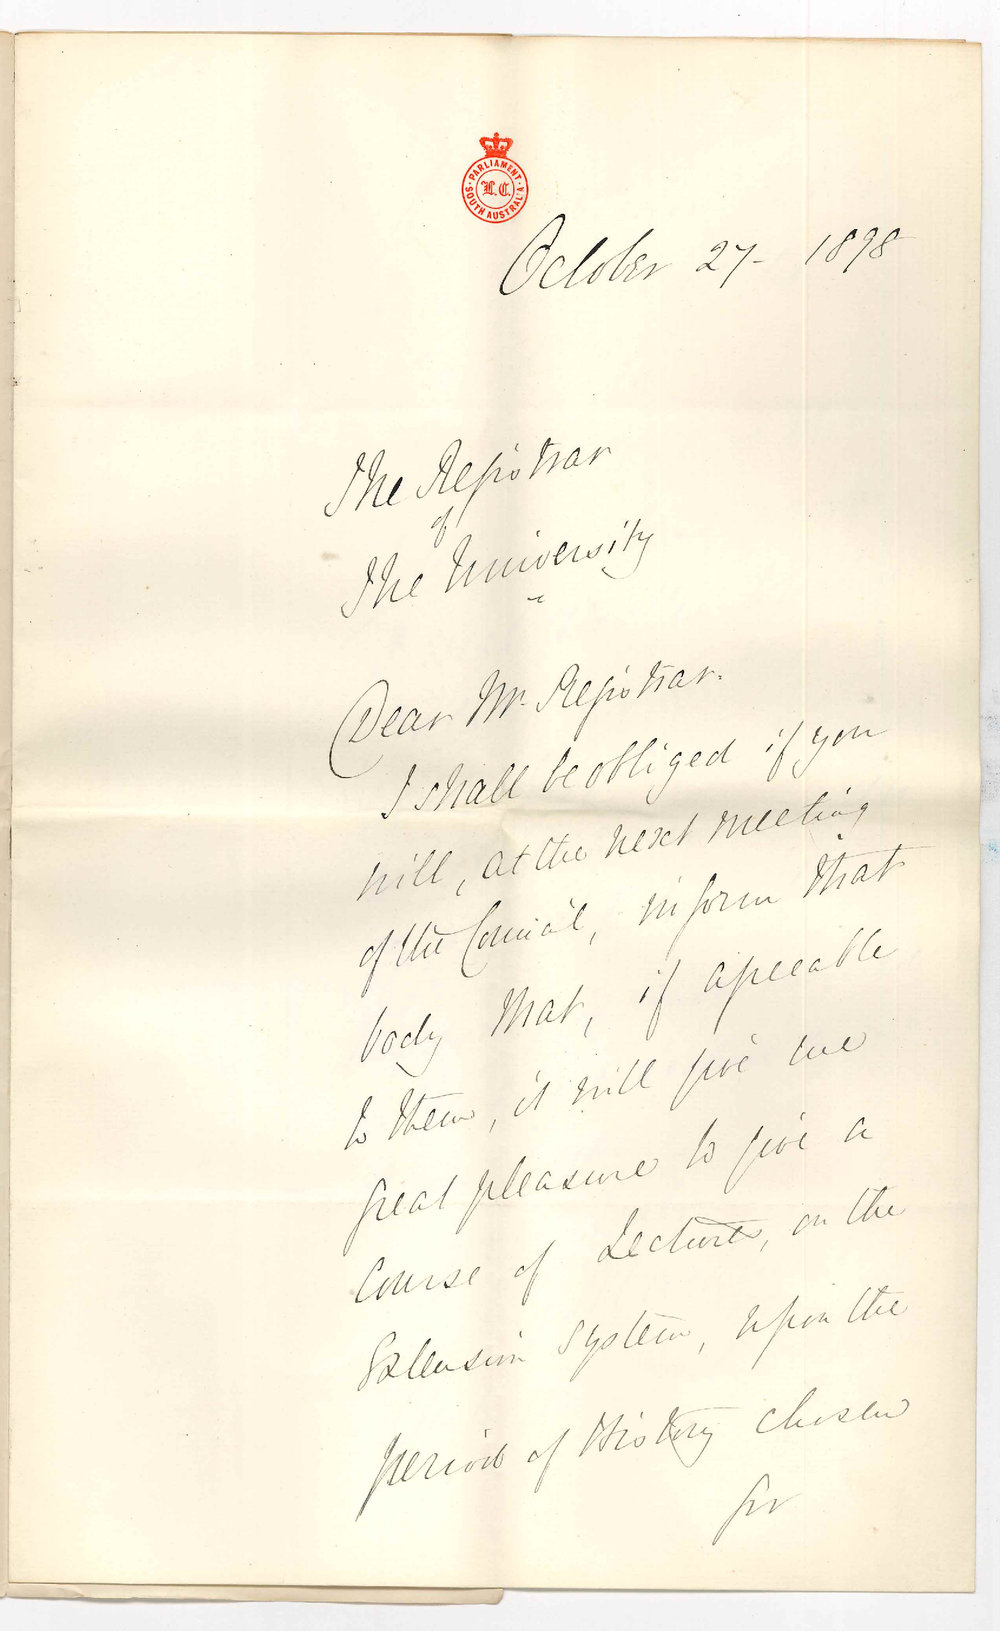 PARLIAMENT
L.C.
SOUTH AUSTRAL'A
October 27 - 1898
The Registrar
of
The University
Dear Mr. Registrar.
I shall be obliged if you
will, at the next meeting
of the Council, inform that
body that, if agreeable
to them, it will give me
great pleasure to give a
course of Lectures, on the
Extension System, upon the
period of History chosen
for